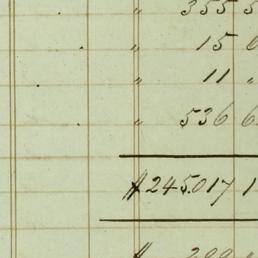 " 355 5
" 15 6
" 11 "
" 536 6
$ 245.017 1
$ 299 "